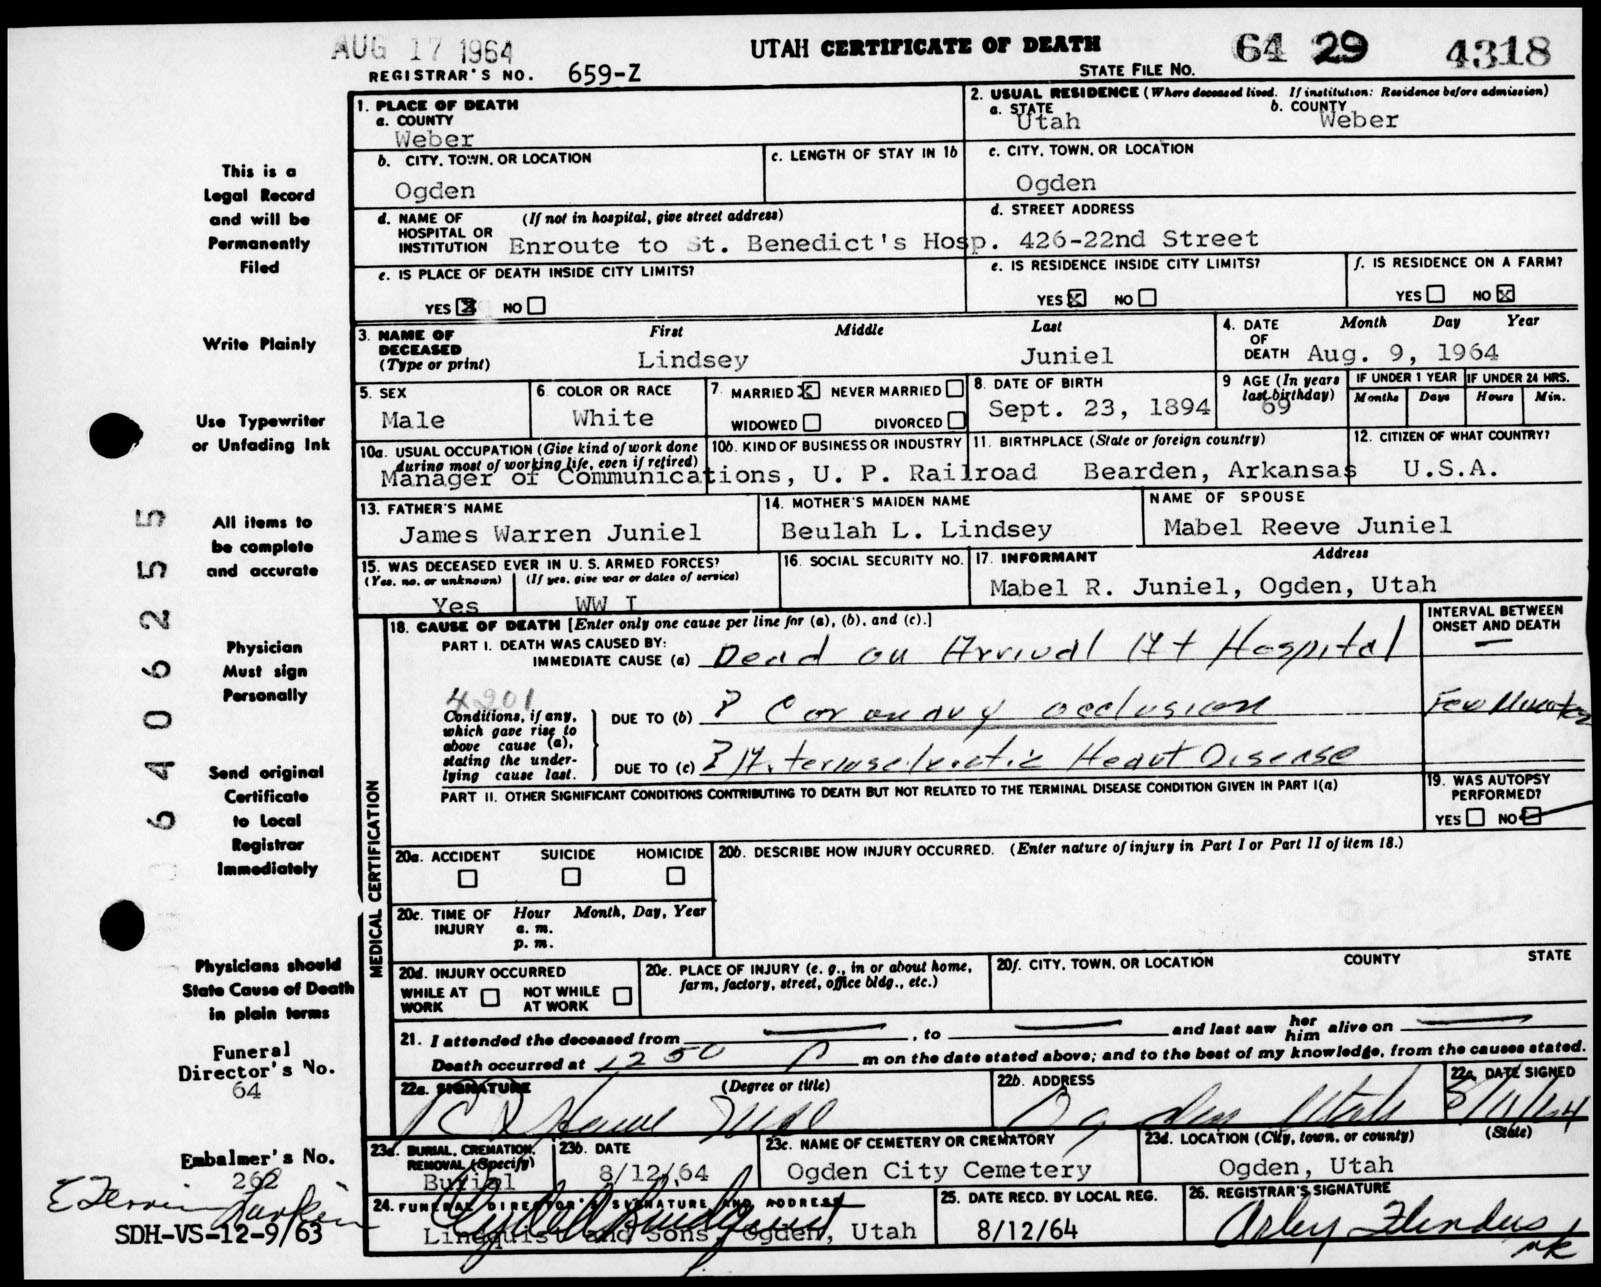 AUG 17 1964
UTAH CERTIFICATE OF DEATH
64 29 4318
REGISTRAR'S NO. 659-Z
STATE FILE NO.
This is a
Legal Record
and will be
Permanently
Filed
Write Plainly
Use Typewriter
or Unfading Ink
All items to
be complete
and accurate
Physician
Must sign
Personally
Send original
Certificate
to Local
Registrar
Immediately
Physicians should
State Cause of Death
in plain terms
Funeral
Director's No.
64
Embalmer's No.
262
SDH-VS-12-9/63
64 0 6 2 5 5
1. PLACE OF DEATH
a. COUNTY
Weber
2. USUAL RESIDENCE (Where deceased lived. If institution: Residence before admission)
a. STATE b. COUNTY
Utah Weber
b. CITY, TOWN, OR LOCATION
Ogden
c. LENGTH OF STAY IN 1b
c. CITY, TOWN, OR LOCATION
Ogden
d. NAME OF (If not in hospital, give street address)
HOSPITAL OR
INSTITUTION Enroute to St. Benedict's Hosp.
d. STREET ADDRESS
426-22nd Street
e. IS PLACE OF DEATH INSIDE CITY LIMITS?
YES NO
e. IS RESIDENCE INSIDE CITY LIMITS?
YES NO
f. IS RESIDENCE ON A FARM?
YES NO
3. NAME OF First Middle Last
DECEASED
(Type or print) Lindsey Juniel
4. DATE Month Day Year
OF
DEATH Aug. 9, 1964
5. SEX
Male
6. COLOR OR RACE
White
7. MARRIED NEVER MARRIED
WIDOWED DIVORCED
8. DATE OF BIRTH
Sept. 23, 1894
9 AGE (In years
last birthday)
69
IF UNDER 1 YEAR IF UNDER 24 HRS.
Months Days Hours Min.
10a. USUAL OCCUPATION (Give kind of work done
during most of working life, even if retired)
10b. KIND OF BUSINESS OR INDUSTRY
Manager of Communications, U. P. Railroad
11. BIRTHPLACE (State or foreign country)
Bearden, Arkansas
12. CITIZEN OF WHAT COUNTRY?
U.S.A.
13. FATHER'S NAME
James Warren Juniel
14. MOTHER'S MAIDEN NAME
Beulah L. Lindsey
NAME OF SPOUSE
Mabel Reeve Juniel
15. WAS DECEASED EVER IN U. S. ARMED FORCES?
(Yes, no, or unknown) (If yes, give war or dates of service)
Yes WW I
16. SOCIAL SECURITY NO.
17. INFORMANT Address
Mabel R. Juniel, Ogden, Utah
MEDICAL CERTIFICATION
18. CAUSE OF DEATH [Enter only one cause per line for (a), (b), and (c).]
INTERVAL BETWEEN
ONSET AND DEATH
PART I. DEATH WAS CAUSED BY:
IMMEDIATE CAUSE (a) Dead on Arrival At Hospital —
4201
Conditions, if any,
which gave rise to
above cause (a),
stating the under-
lying cause last.
DUE TO (b) ? Coronary occlusion Few Minutes
DUE TO (c) ? Arteriosclerotic Heart Disease
PART II. OTHER SIGNIFICANT CONDITIONS CONTRIBUTING TO DEATH BUT NOT RELATED TO THE TERMINAL DISEASE CONDITION GIVEN IN PART I(a)
19. WAS AUTOPSY
PERFORMED?
YES NO
20a. ACCIDENT SUICIDE HOMICIDE
20b. DESCRIBE HOW INJURY OCCURRED. (Enter nature of injury in Part I or Part II of item 18.)
20c. TIME OF Hour Month, Day, Year
INJURY a. m.
p. m.
20d. INJURY OCCURRED
WHILE AT WORK NOT WHILE AT WORK
20e. PLACE OF INJURY (e. g., in or about home,
farm, factory, street, office bldg., etc.)
20f. CITY, TOWN, OR LOCATION COUNTY STATE
21. I attended the deceased from — , to — and last saw her him alive on —
Death occurred at 12 50 P m on the date stated above; and to the best of my knowledge, from the causes stated.
22a. SIGNATURE (Degree or title)
22b. ADDRESS
Ogden Utah
22c. DATE SIGNED
8/11/64
23a. BURIAL, CREMATION,
REMOVAL (Specify)
Burial
23b. DATE
8/12/64
23c. NAME OF CEMETERY OR CREMATORY
Ogden City Cemetery
23d. LOCATION (City, town, or county) (State)
Ogden, Utah
24. FUNERAL DIRECTOR'S SIGNATURE AND ADDRESS
Lindquist and Sons, Ogden, Utah
25. DATE RECD. BY LOCAL REG.
8/12/64
26. REGISTRAR'S SIGNATURE
Arley Flinders